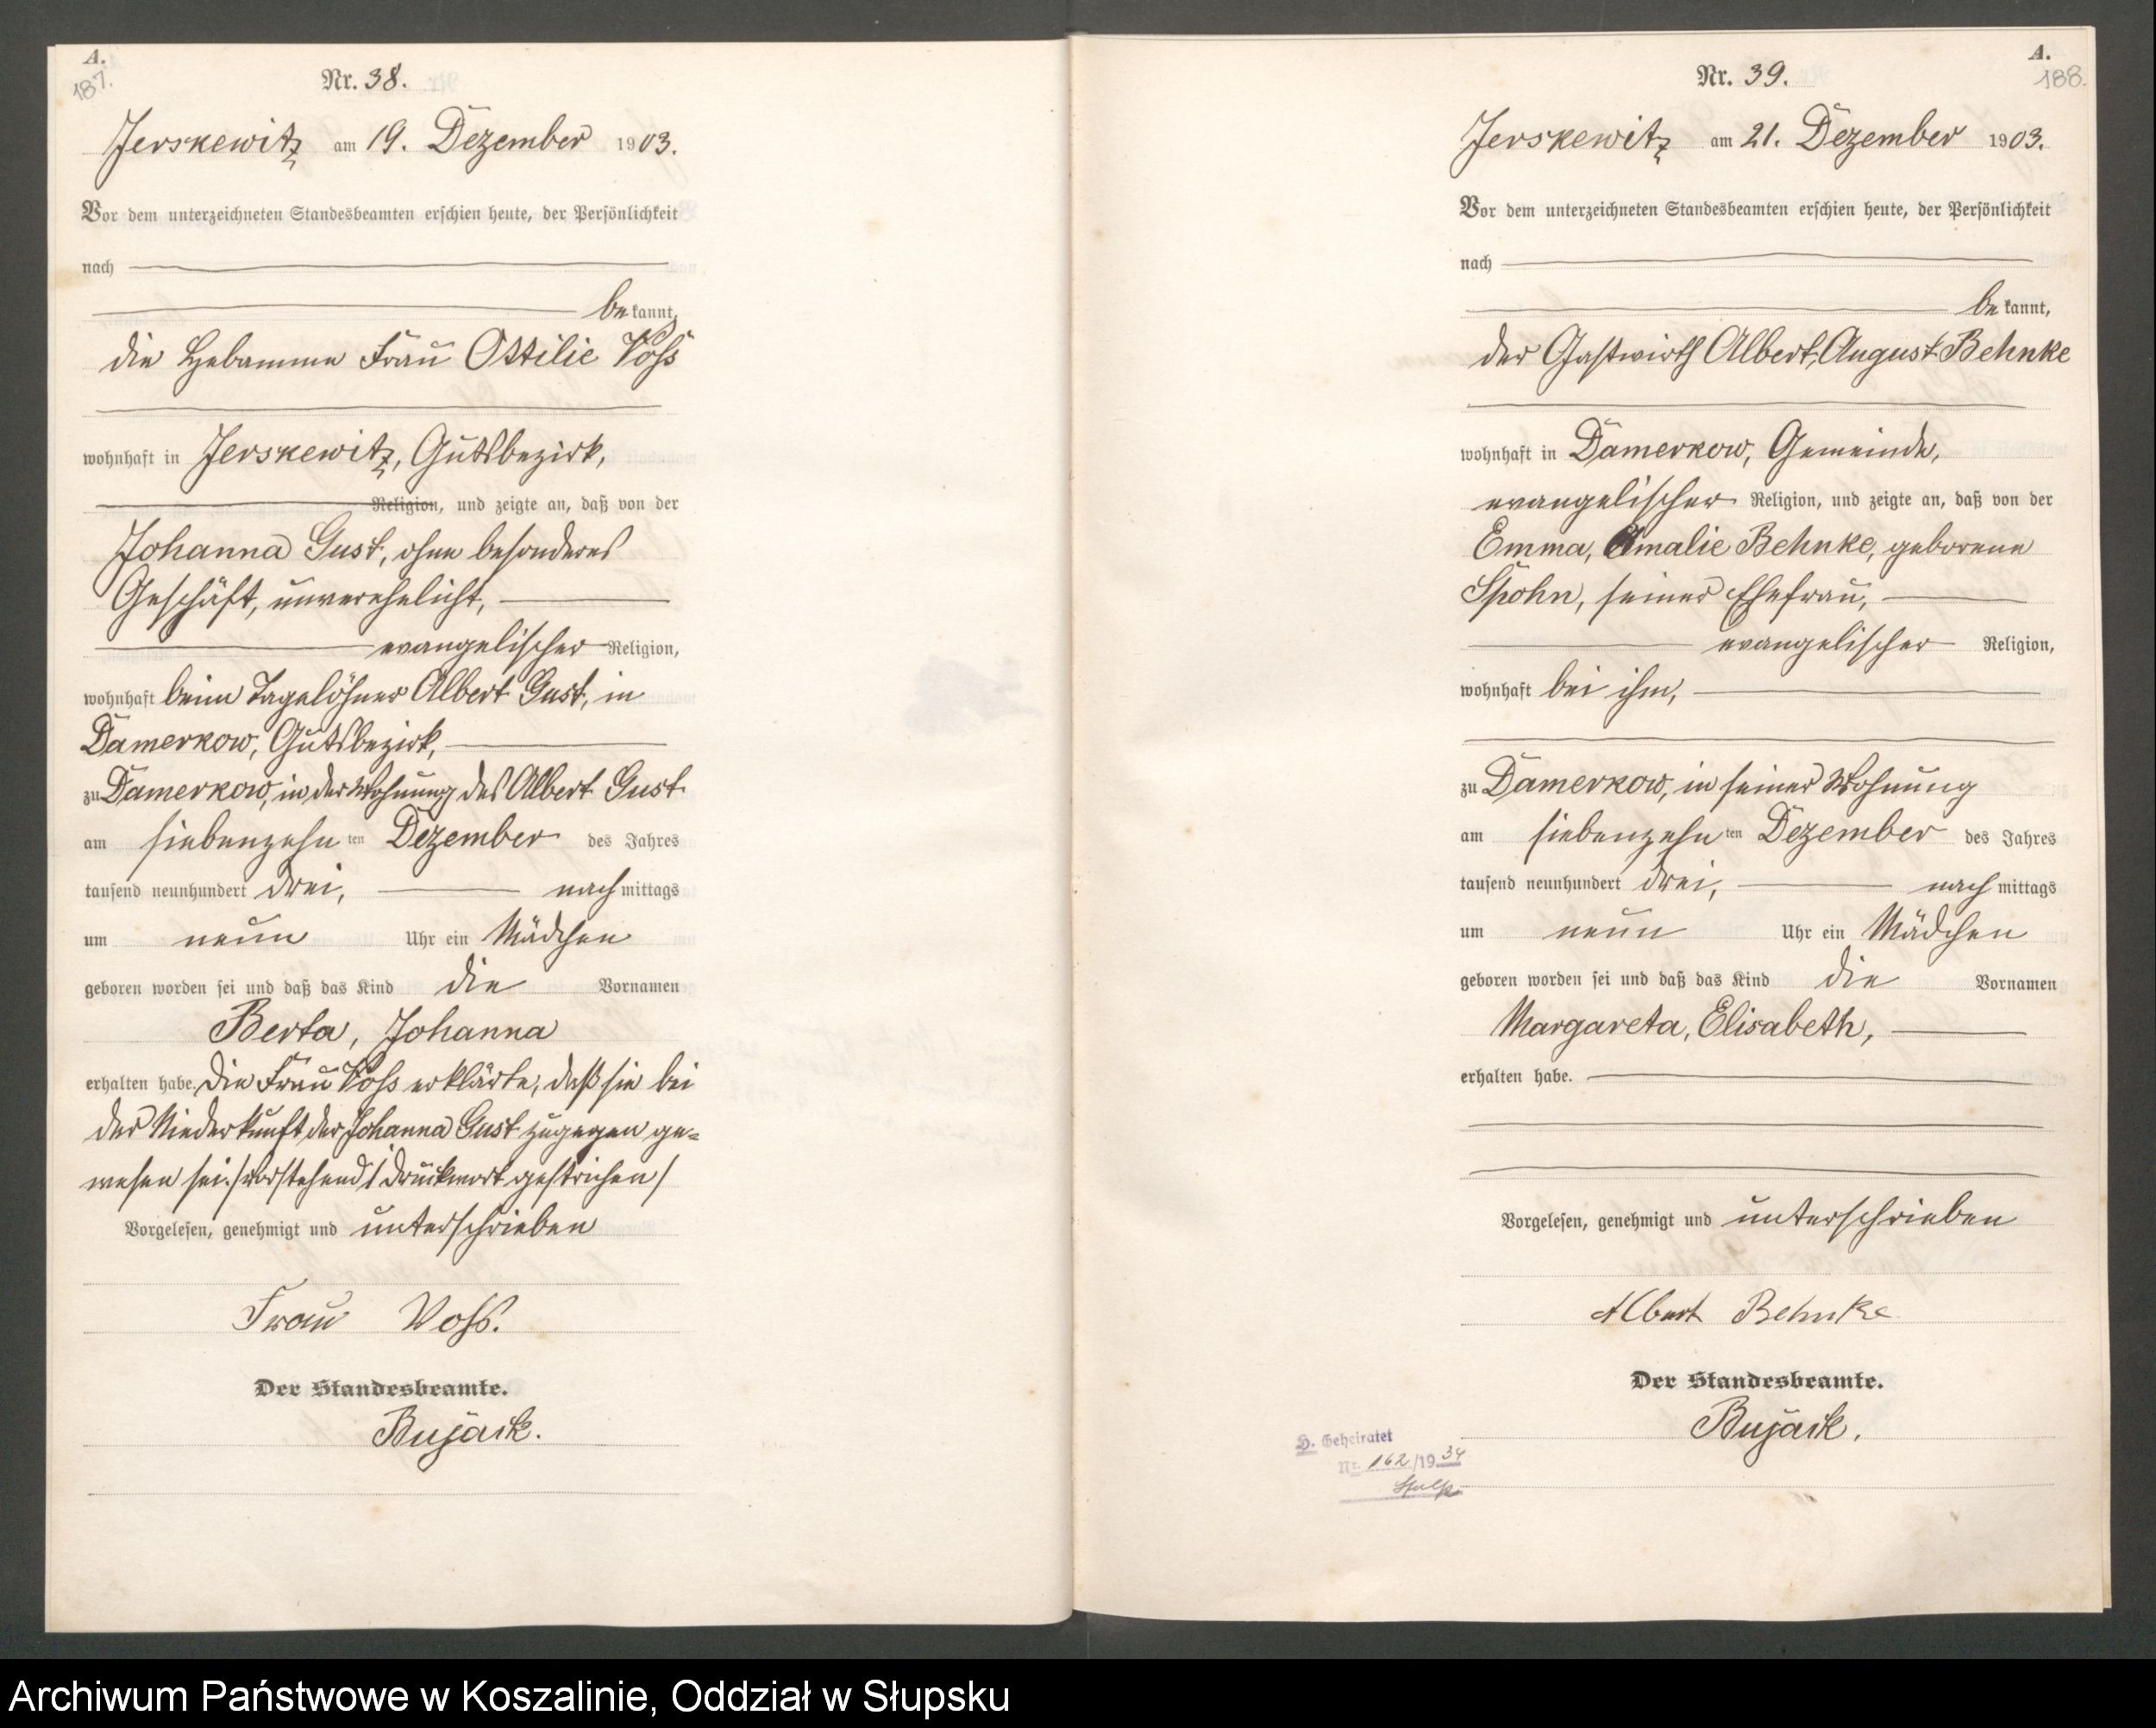 A.
187.
Nr. 38.
Jerskewitz am 19. Dezember 1903.
Vor dem unterzeichneten Standesbeamten erschien heute, der Persönlichkeit
nach
bekannt,
die Hebamme Frau Ottilie Voß
wohnhaft in Jerskewitz, Gutsbezirk,
Religion, und zeigte an, daß von der
Johanna Gust, ohne besonderes
Geschäft, unverehelicht,
evangelischer Religion,
wohnhaft beim Tagelöhner Albert Gust, in
Damerkow, Gutsbezirk,
zu Damerkow, in der Wohnung des Albert Gust
am siebenzehnten Dezember des Jahres
tausend neunhundert drei, nachmittags
um neun Uhr ein Mädchen
geboren worden sei und daß das Kind die Vornamen
Berta, Johanna
erhalten habe. Die Frau Voß erklärte, daß sie bei
der Niederkunft der Johanna Gust zugegen ge=
wesen sei. /Vorstehend 1 Druckwort gestrichen/
Vorgelesen, genehmigt und unterschrieben
Frau Voß.
Der Standesbeamte.
Bujack.
A.
188.
Nr. 39.
Jerskewitz am 21. Dezember 1903.
Vor dem unterzeichneten Standesbeamten erschien heute, der Persönlichkeit
nach
bekannt,
der Gastwirth Albert, August Behnke
wohnhaft in Damerkow, Gemeinde,
evangelischer Religion, und zeigte an, daß von der
Emma, Amalie Behnke, geborene
Spohn, seiner Ehefrau,
evangelischer Religion,
wohnhaft bei ihm,
zu Damerkow, in seiner Wohnung
am siebenzehnten Dezember des Jahres
tausend neunhundert drei, nachmittags
um neun Uhr ein Mädchen
geboren worden sei und daß das Kind die Vornamen
Margareta, Elisabeth,
erhalten habe.
Vorgelesen, genehmigt und unterschrieben
Albert Behnke
Der Standesbeamte.
Bujack.
H. Geheiratet
Nr. 162/1934
Stolp
Archiwum Państwowe w Koszalinie, Oddział w Słupsku